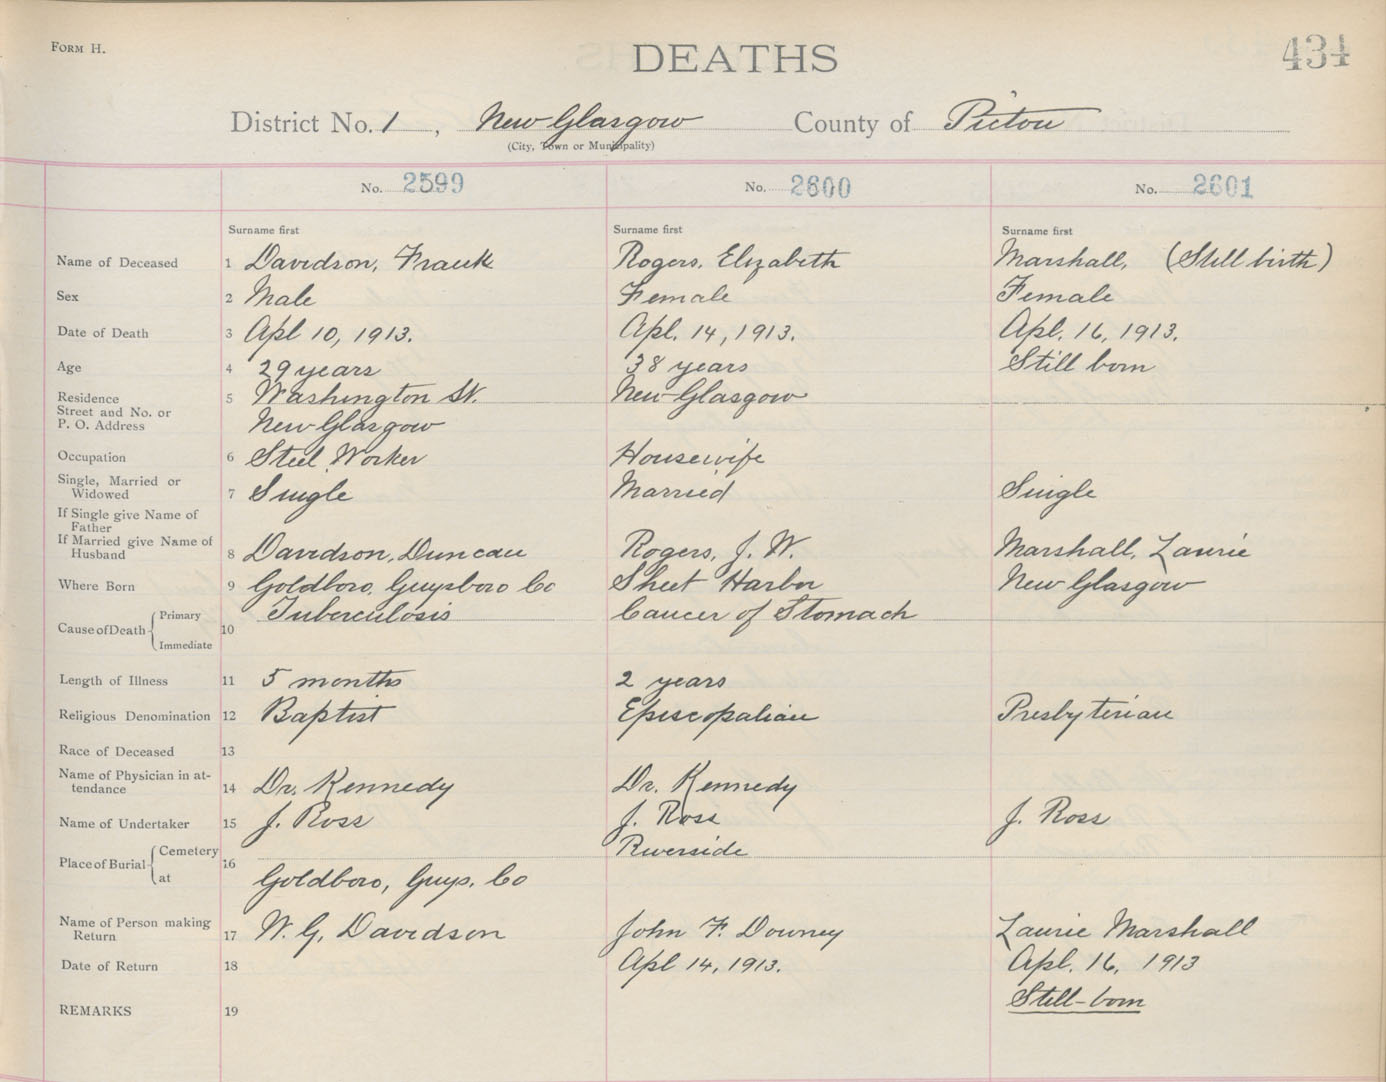 FORM H.
DEATHS
434
District No. 1, New Glasgow County of Pictou
(City, Town or Municipality)
No. 2599 No. 2600 No. 2601
Surname first Surname first Surname first
Name of Deceased 1 Davidson, Frank Rogers, Elizabeth Marshall, (Still birth)
Sex 2 Male Female Female
Date of Death 3 Apl 10, 1913. Apl. 14, 1913. Apl. 16, 1913.
Age 4 29 years 38 years Still born
Residence 5 Washington St. New Glasgow
Street and No. or
P. O. Address New Glasgow
Occupation 6 Steel Worker Housewife
Single, Married or
Widowed 7 Single Married Single
If Single give Name of
Father
If Married give Name of
Husband 8 Davidson, Duncan Rogers, J. W. Marshall, Laurie
Where Born 9 Goldboro, Guysboro Co Sheet Harbor New Glasgow
Cause of Death Primary 10 Tuberculosis Cancer of Stomach
Immediate
Length of Illness 11 5 months 2 years
Religious Denomination 12 Baptist Episcopalian Presbyterian
Race of Deceased 13
Name of Physician in at-
tendance 14 Dr. Kennedy Dr. Kennedy
Name of Undertaker 15 J. Ross J. Ross J. Ross
Place of Burial Cemetery 16 Riverside
at Goldboro, Guys. Co
Name of Person making
Return 17 W. G. Davidson John F. Downey Laurie Marshall
Date of Return 18 Apl 14, 1913. Apl. 16, 1913
REMARKS 19 Still-born